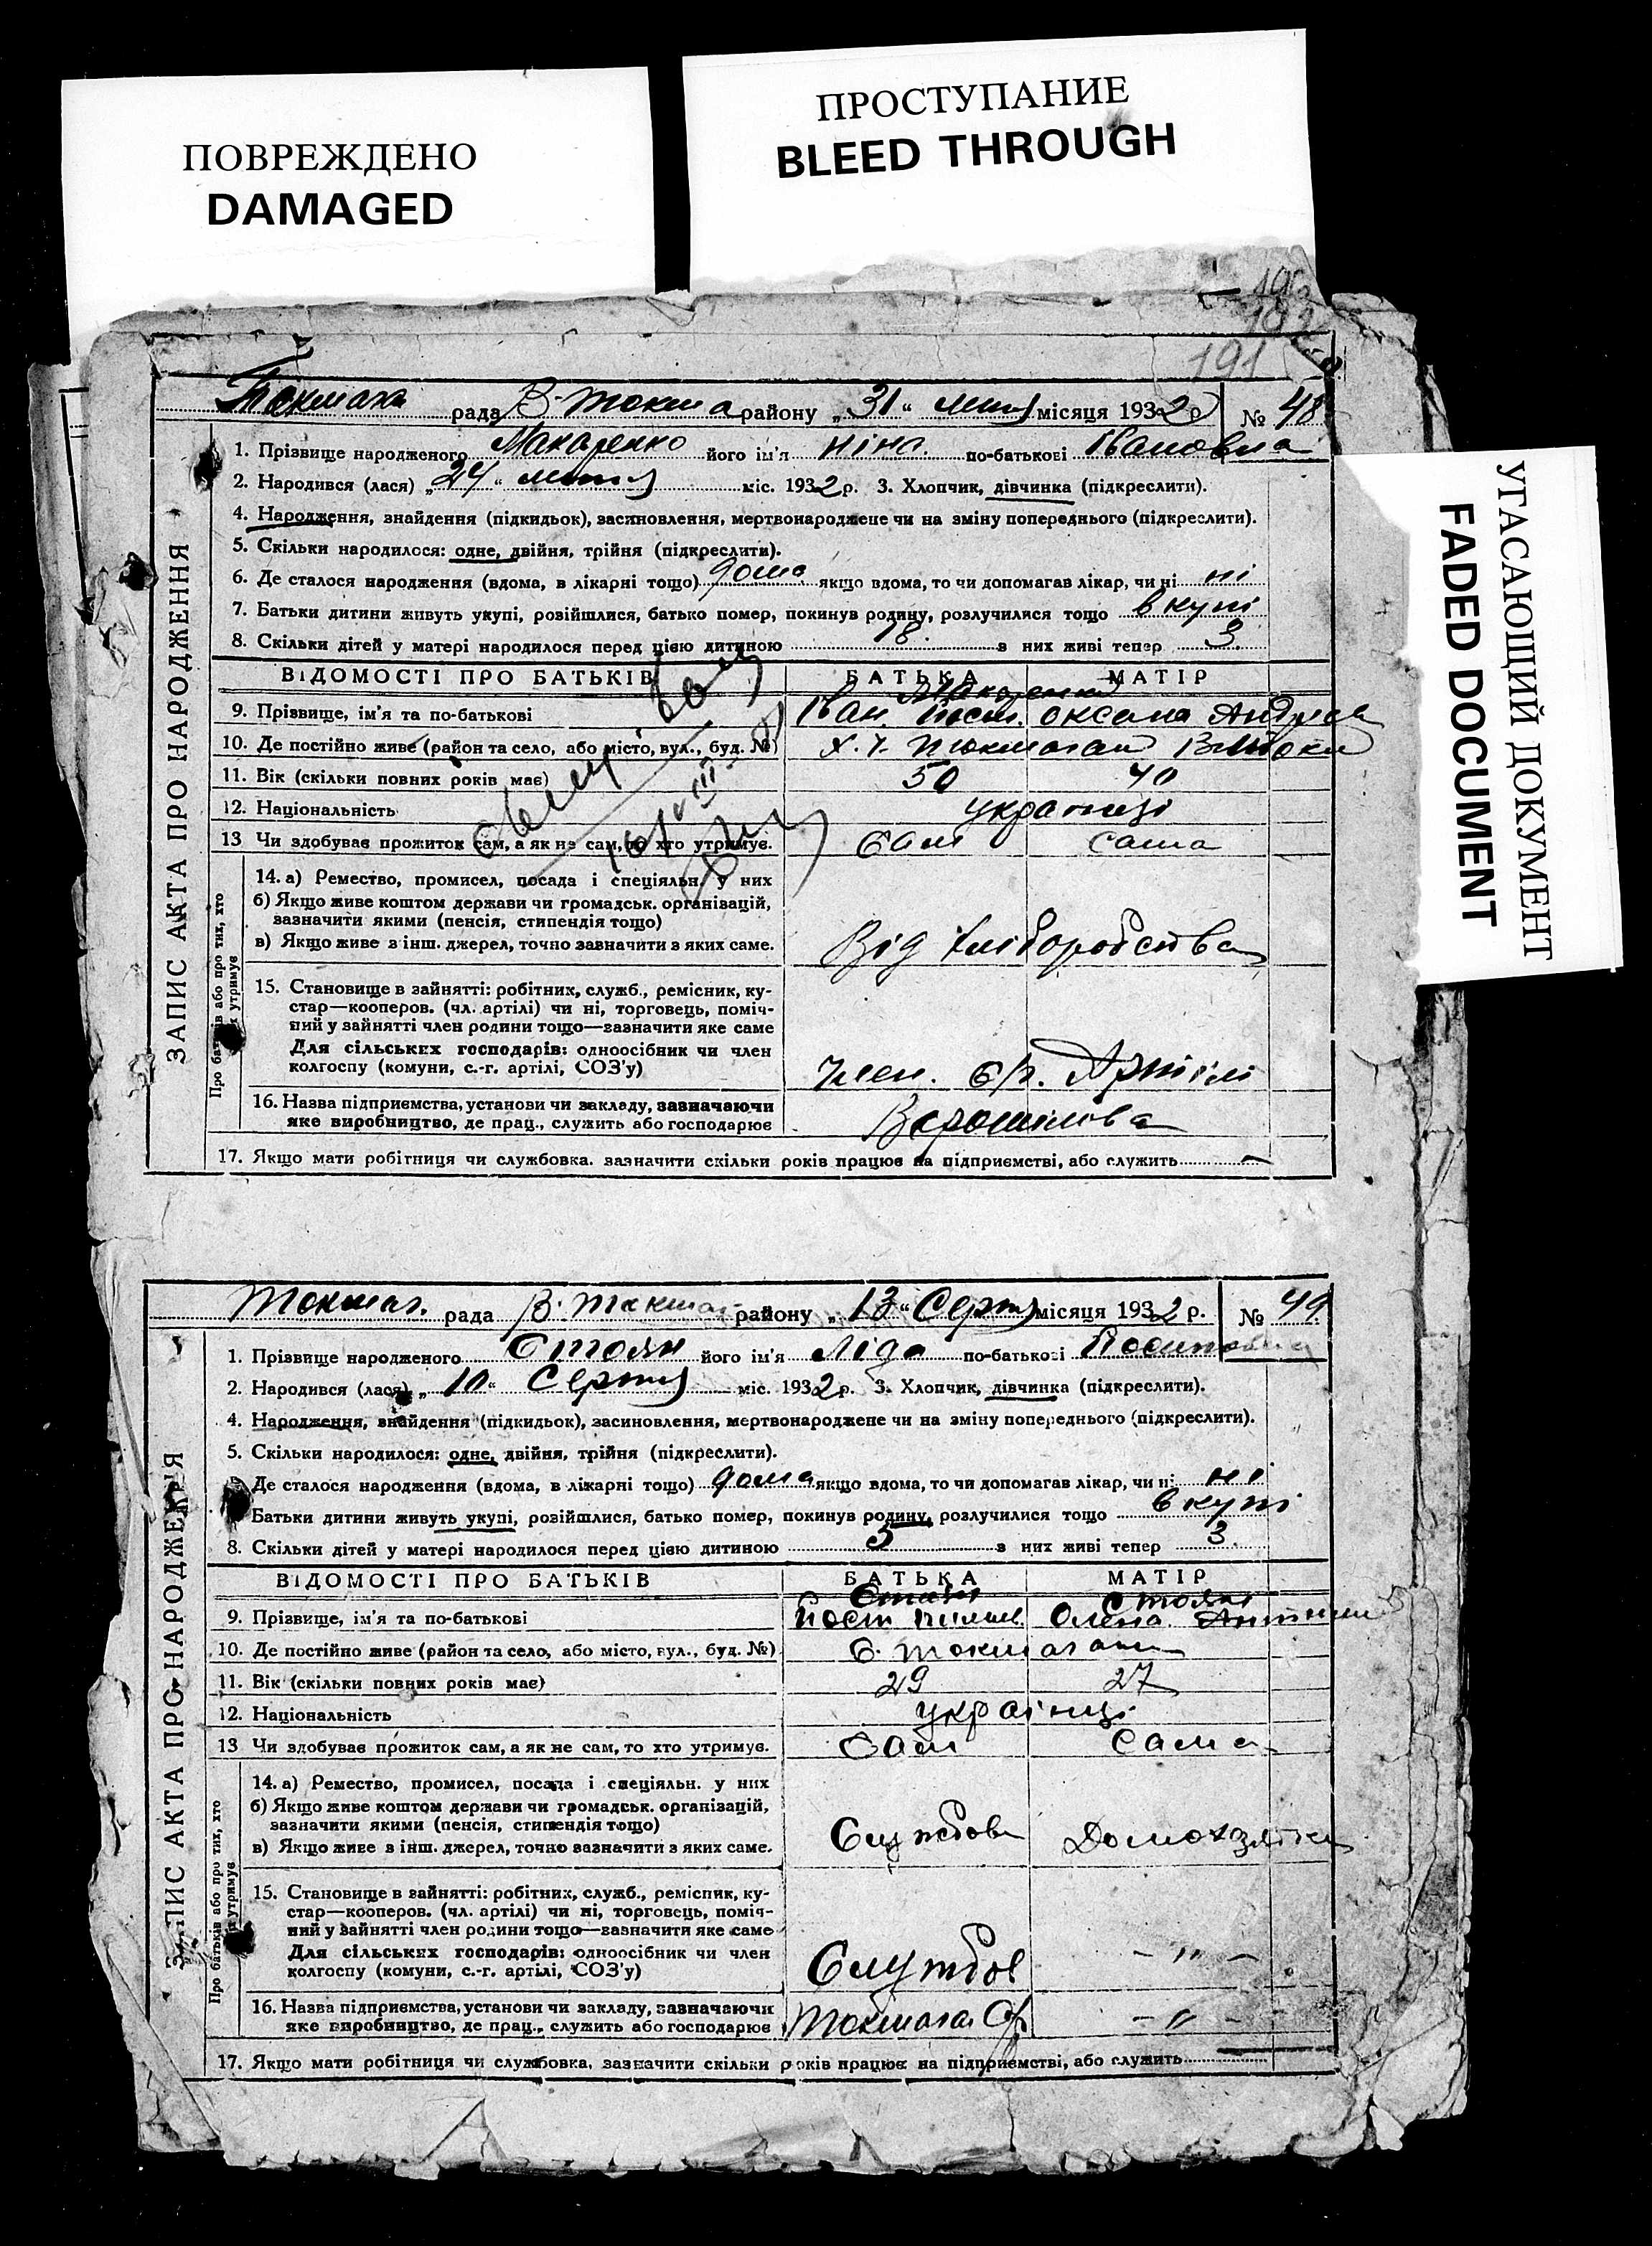 ПОВРЕЖДЕНО
DAMAGED
ПРОСТУПАНИЕ
BLEED THROUGH
УГАСАЮЩИЙ ДОКУМЕНТ
FADED DOCUMENT
191
рада В-Токма району „31“ місяця 1932 р № 48
ЗАПИС АКТА ПРО НАРОДЖЕННЯ
1. Прізвище народженого Макаренко його ім'я Ніна. по-батькові Івановна
2. Народився (лася) „24“ міс. 1932 р. 3. Хлопчик, дівчинка (підкреслити).
4. Народження, знайдення (підкидьок), засиновлення, мертвонароджене чи на зміну попереднього (підкреслити).
5. Скільки народилося: одне, двійня, трійня (підкреслити).
6. Де сталося народження (вдома, в лікарні тощо) дома якщо вдома, то чи допомагав лікар, чи ні ні
7. Батьки дитини живуть укупі, розійшлися, батько помер, покинув родину, розлучилися тощо вкупі
8. Скільки дітей у матері народилося перед цією дитиною з них живі тепер 3.
ВІДОМОСТІ ПРО БАТЬКІВ БАТЬКА МАТІР
Макаренки
9. Прізвище, ім'я та по-батькові Іван. Оксана Андреев
10. Де постійно живе (район та село, або місто, вул., буд. №)
11. Вік (скільки повних років має) 50 40
12. Національність
13 Чи здобував прожиток сам, а як не сам, то хто утримує. Сам Сама
Про батьків або про тих, хто їх утримує
14. а) Ремество, промисел, посада і спеціяльн. у них
б) Якщо живе коштом держави чи громадськ. організацій,
зазначити якими (пенсія, стипендія тощо)
в) Якщо живе з інш. джерел, точно зазначити з яких саме.
Від хліборобства
15. Становище в зайнятті: робітних, служб., ремісник, ку-
стар—кооперов. (чл. артілі) чи ні, торговець, поміч-
ний у зайнятті член родини тощо—зазначити яке саме
Для сільських господарів: одноосібник чи член
колгоспу (комуни, с.-г. артілі, СОЗ'у)
Член. с/г. Артілі
16. Назва підприємства, установи чи закладу, зазначаючи
яке виробництво, де прац., служить або господарює
Ворошилова
17. Якщо мати робітниця чи службовка. зазначити скільки років працює на підприємстві, або служить —
Токмач. рада В. Токмач району „13“ Серпня місяця 1932 р. № 49
ЗАПИС АКТА ПРО НАРОДЖЕННЯ
1. Прізвище народженого Стоян його ім'я Ліда по-батькові
2. Народився (лася) „10“ Серпня міс. 1932 р. 3. Хлопчик, дівчинка (підкреслити).
4. Народження, знайдення (підкидьок), засиновлення, мертвонароджене чи на зміну попереднього (підкреслити).
5. Скільки народилося: одне, двійня, трійня (підкреслити).
Де сталося народження (вдома, в лікарні тощо) дома якщо вдома, то чи допомагав лікар, чи ні ні
Батьки дитини живуть укупі, розійшлися, батько помер, покинув родину, розлучилися тощо вкупі
8. Скільки дітей у матері народилося перед цією дитиною 5 з них живі тепер 3.
ВІДОМОСТІ ПРО БАТЬКІВ БАТЬКА МАТІР
Стоян Стоян
9. Прізвище, ім'я та по-батькові Олена
10. Де постійно живе (район та село, або місто, вул., буд. №)
11. Вік (скільки повних років має) 29 27
12. Національність українці
13 Чи здобував прожиток сам, а як не сам, то хто утримує. Сам Сама
Про батьків або про тих, хто їх утримує
14. а) Ремество, промисел, посада і спеціяльн. у них
б) Якщо живе коштом держави чи громадськ. організацій,
зазначити якими (пенсія, стипендія тощо)
в) Якщо живе з інш. джерел, точно зазначити з яких саме.
Службов
15. Становище в зайнятті: робітних, служб., ремісник, ку-
стар—кооперов. (чл. артілі) чи ні, торговець, поміч-
ний у зайнятті член родини тощо—зазначити яке саме
Для сільських господарів: одноосібник чи член
колгоспу (комуни, с.-г. артілі, СОЗ'у)
Службов — " —
16. Назва підприємства, установи чи закладу, зазначаючи
яке виробництво, де прац., служить або господарює
— " —
17. Якщо мати робітниця чи службовка, зазначити скільки років працює на підприємстві, або служить